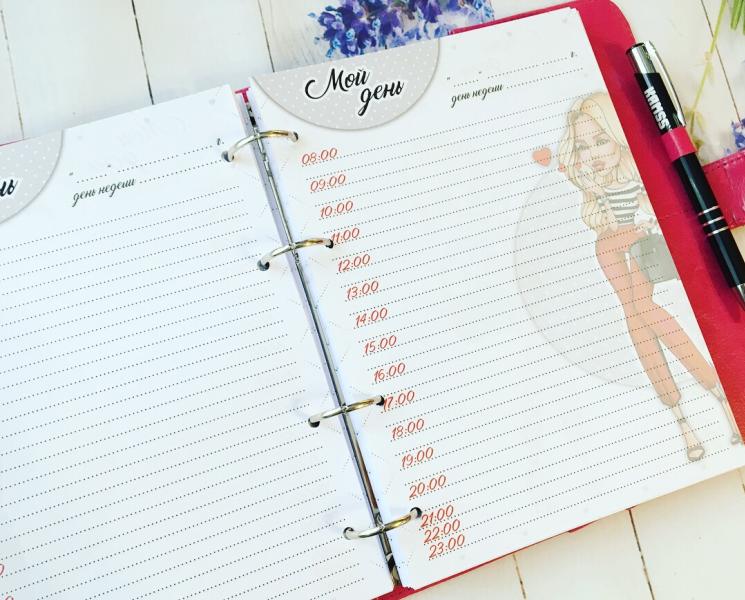 нь
г.
день недели
Мой
день
" " г.
день недели
08:00
09:00
10:00
11:00
12:00
13:00
14:00
15:00
16:00
17:00
18:00
19:00
20:00
21:00
22:00
23:00